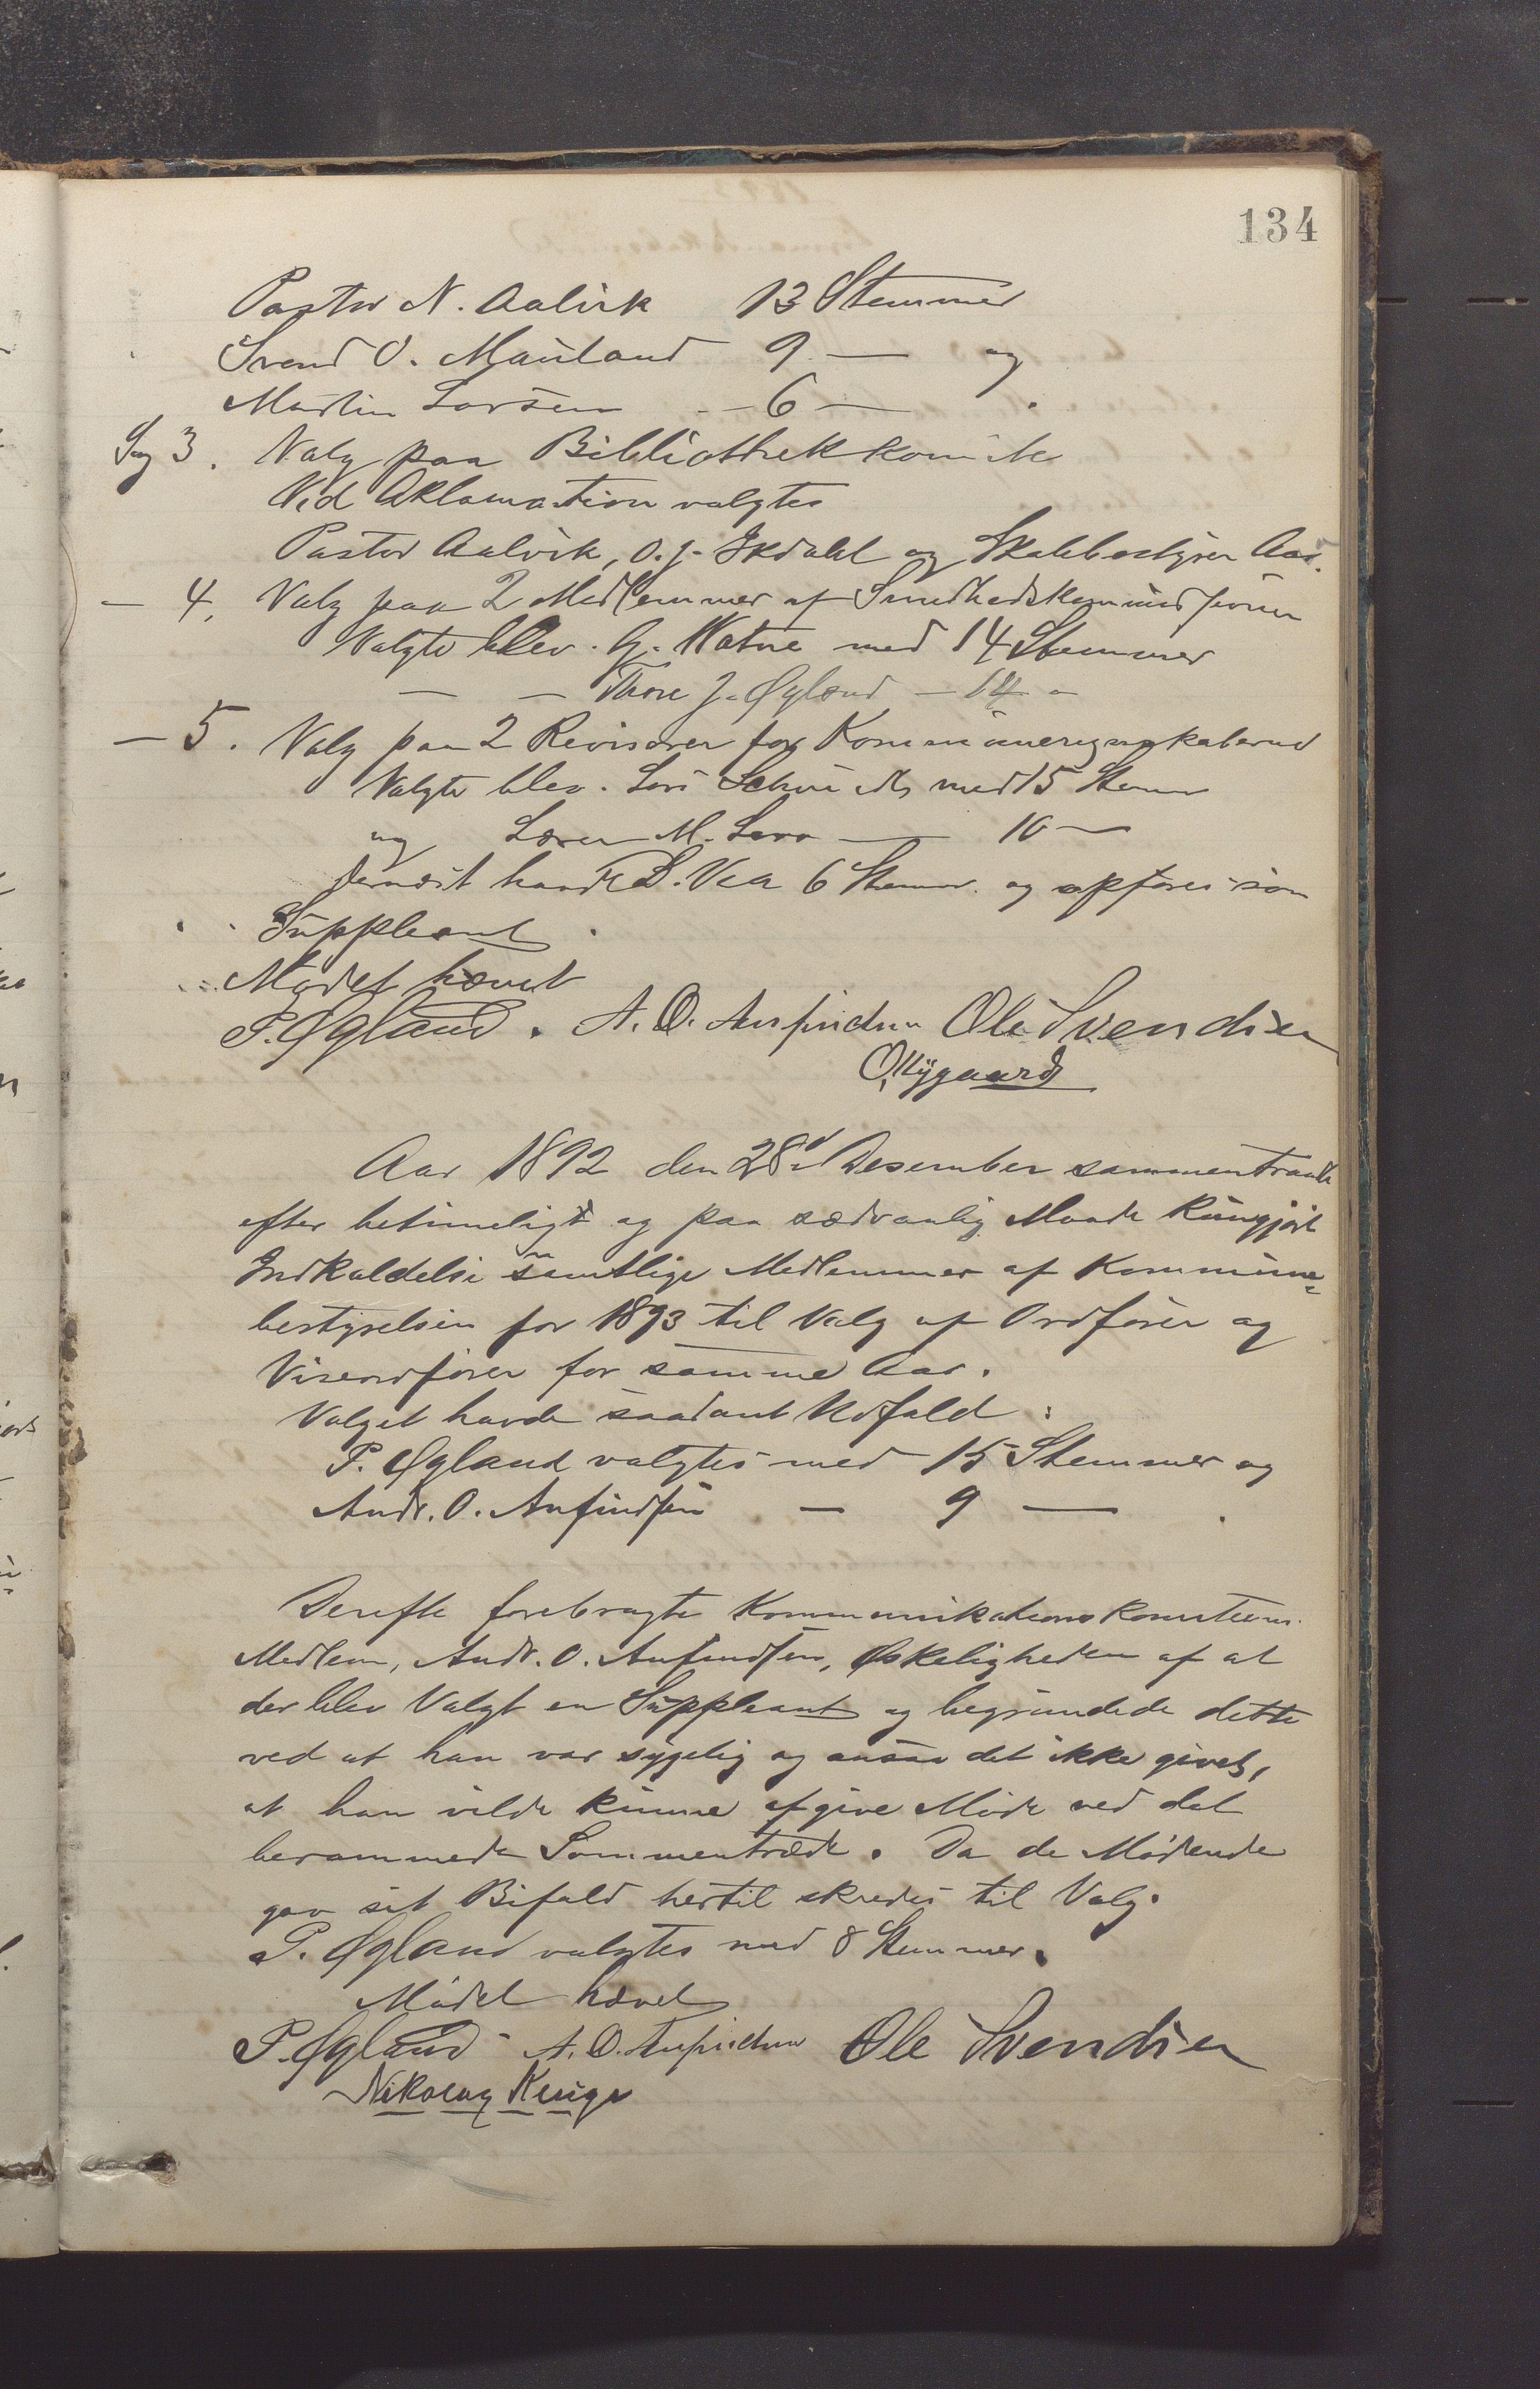 134
Pastor N. Aalvik 13 Stemmer
Svend O. Mauland 9 — og
Martin Larsen - 6 — .
Sag 3. Valg paa Bibliothekkomite
Ved Aklamation valgtes
Pastor Aalvik, O. J. Ekdahl og Skolebestyrer Aas.
— 4. Valg paa 2 Medlemmer af Sundhedskommissionen
Valgte blev G. Watne med 14 Stemmer
— — Thore J. Øgland — 14 -
— 5. Valg paa 2 Revisorer for Kommuneregnskaberne
Valgte blev med 15 Stemr
og Lærer M. — 10 —
dernæst havde S. Vea 6 Stemr. og opføres som
Suppleant.
Mødet hævet
P. Øgland. A. O. Anfindsen Ole Svendsen
O. Nygaard
Aar 1892 den 28d Desember sammentraadte
efter betimeligt og paa sædvanlig Maade kungjort
Indkaldelse samtlige Medlemmer af Kommune-
bestyrelsen for 1893 til Valg af Ordfører og
Viseordfører for samme Aar.
Valget havde saadant Udfald:
P. Øgland valgtes med 15 Stemmer og
Andr. O. Anfindsen — 9 — .
Derefter forebragte Kommunikationskomiteens
Medlem, Andr. O. Anfindsen, Øskeligheden af at
der blev Valgt en Suppleant og begrundede dette
ved at han var sygelig og ansaa det ikke givet,
at han vilde kunne afgive Møde ved det
berammede Sammentræde. Da de Mødende
gav sit Bifald hertil skredes til Valg.
P. Øgland valgtes med 8 Stemmer.
Mødet hævet
P. Øgland - A. O. Anfindsen Ole Svendsen
Nikolay